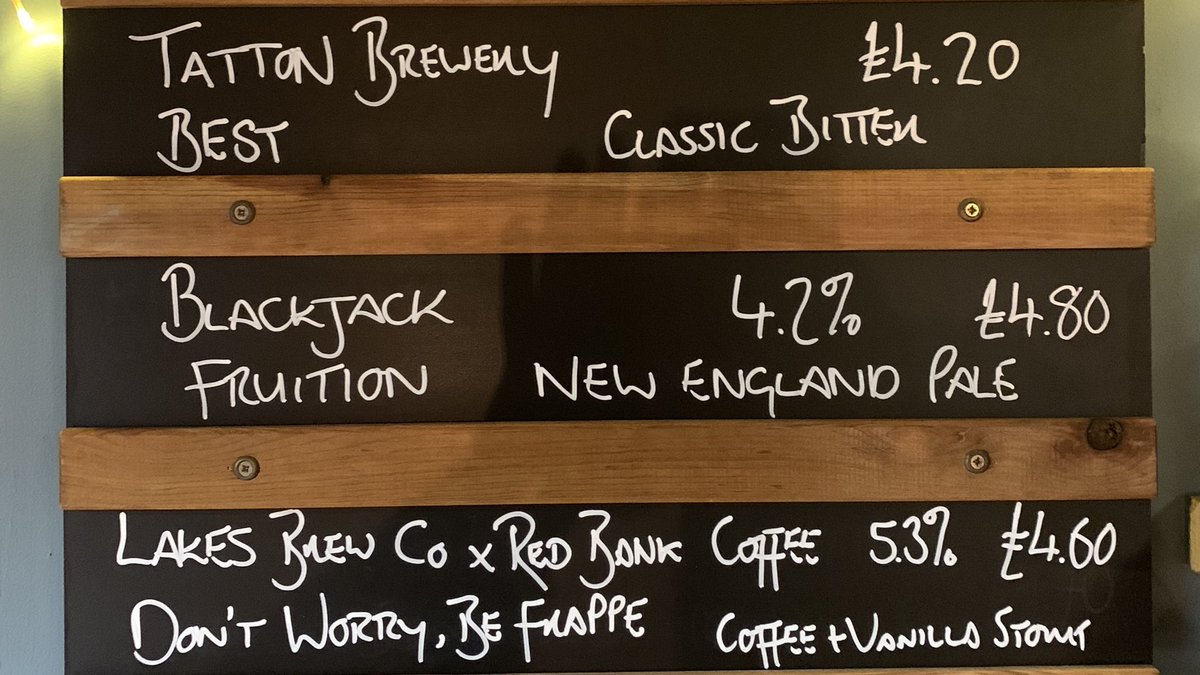 TATTON BREWERY £4.20
BEST CLASSIC BITTER
BLACKJACK 4.2% £4.80
FRUITION NEW ENGLAND PALE
LAKES BREW CO x RED BANK COFFEE 5.3% £4.60
DON'T WORRY, BE FRAPPE COFFEE + VANILLA STOUT